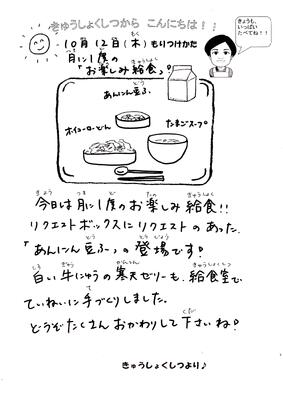 きゅうしょくしつから こんにちは!!
きょうも、
いっぱい
たべてね!!
10月12日(木)もりつけかた
月に1度の
「お楽しみ給食」
あんにん豆ふ
ホイコーローどん
たまごスープ
今日は月に1度のお楽しみ給食!!
リクエストボックスにリクエストのあった、
「あんにん豆ふ」の登場です!
白い牛にゅうの寒天ゼリーも、給食室で
ていねいに手づくりしました。
どうぞたくさんおかわりして下さいね!
きゅうしょくしつより♪